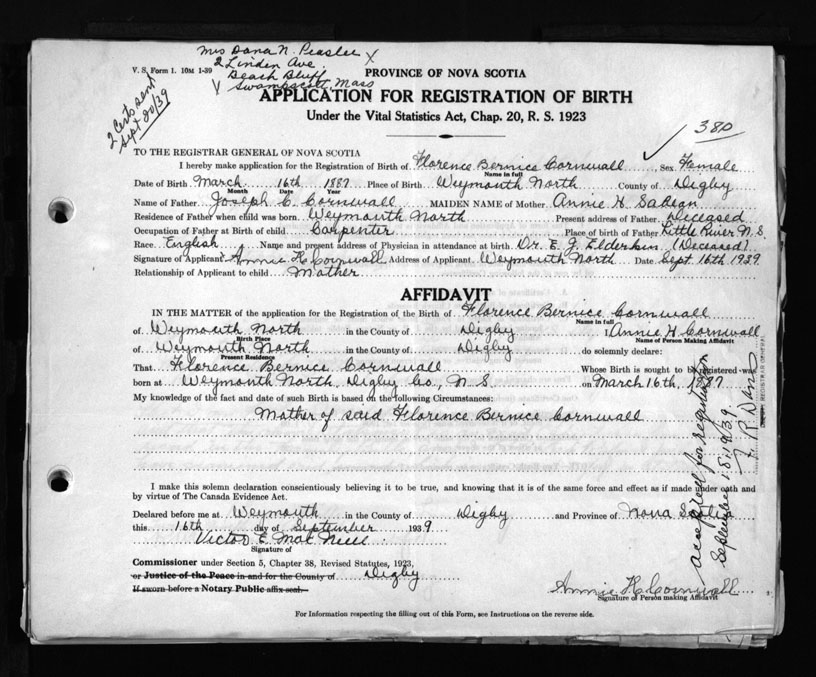 Mrs Dana N. Peaslee X
2 Linden Ave.
Beach Bluff
Swampscott, Mass
V. S. Form 1. 10M 1-39
2 Certs sent
Sept 20/39
PROVINCE OF NOVA SCOTIA
APPLICATION FOR REGISTRATION OF BIRTH
Under the Vital Statistics Act, Chap. 20, R. S. 1923
380
TO THE REGISTRAR GENERAL OF NOVA SCOTIA
I hereby make application for the Registration of Birth of Florence Bernice Cornwall, Sex Female
Name in full
Date of Birth March 16th 1887 Place of Birth Weymouth North County of Digby
Month Date Year
Name of Father Joseph C. Cornwall MAIDEN NAME of Mother Annie H.
Residence of Father when child was born Weymouth North Present address of Father Deceased
Occupation of Father at Birth of child Carpenter Place of birth of Father Little River N.S.
Race English Name and present address of Physician in attendance at birth Dr. E. J. Elderkin (Deceased)
Signature of Applicant Annie H. Cornwall Address of Applicant Weymouth North Date Sept. 16th 1939
Relationship of Applicant to child Mother
AFFIDAVIT
IN THE MATTER of the application for the Registration of the Birth of Florence Bernice Cornwall
Name in full
of Weymouth North in the County of Digby I Annie H Cornwall
Birth Place Name of Person Making Affidavit
of Weymouth North in the County of Digby do solemnly declare:
Present Residence
That Florence Bernice Cornwall Whose Birth is sought to be registered was
born at Weymouth North, Digby Co., N S. on March 16th, 1887
My knowledge of the fact and date of such Birth is based on the following Circumstances:
Mother of said Florence Bernice Cornwall
I make this solemn declaration conscientiously believing it to be true, and knowing that it is of the same force and effect as if made under oath and
by virtue of The Canada Evidence Act.
Declared before me at Weymouth in the County of Digby and Province of Nova Scotia
this 16th day of September 1939
Victor E. Mac Neill
Signature of
Commissioner under Section 5, Chapter 38, Revised Statutes, 1923,
or Justice of the Peace in and for the County of Digby
If sworn before a Notary Public affix seal.
Annie H. Cornwall
Signature of Person making Affidavit
For Information respecting the filling out of this Form, see Instructions on the reverse side.
accepted for registration
September 18, 1939.
REGISTRAR GENERAL